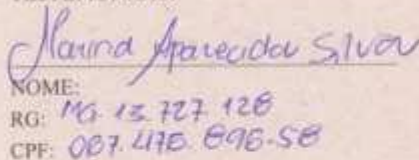 Marina Aparecida Silva
NOME:
RG: MG 13.727.128
CPF: 087.475.896-58